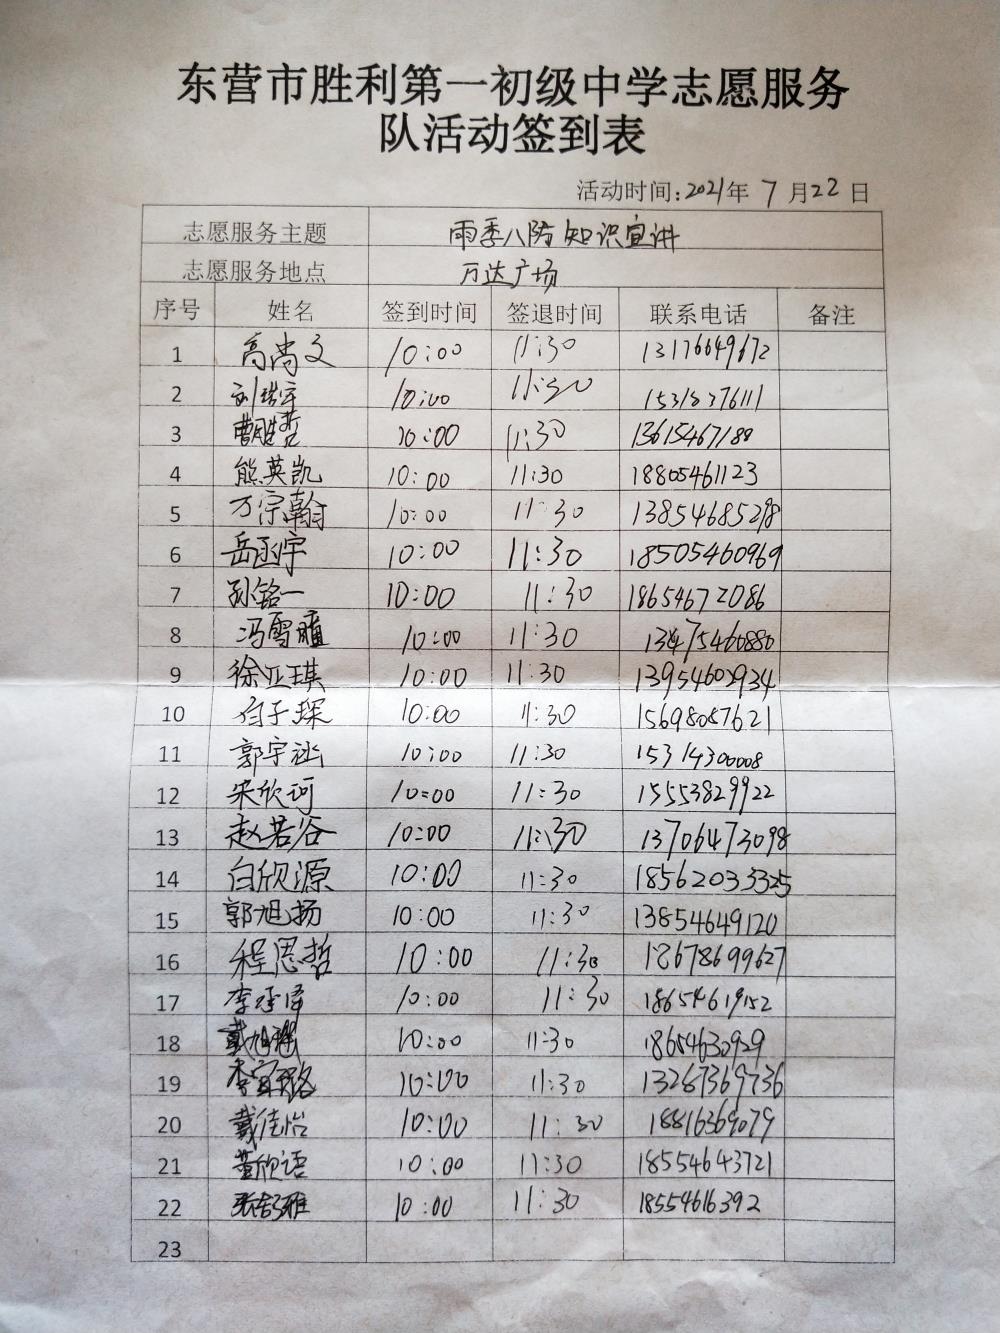 东营市胜利第一初级中学志愿服务
队活动签到表
活动时间:2021年 7 月22 日
志愿服务主题 雨季八防知识宣讲
志愿服务地点 万达广场
序号 姓名 签到时间 签退时间 联系电话 备注
1 高尚文 10:00 11:30 13176649672
2 10:00 11:30 15318376111
3 曹胜哲 10:00 11:30 13615467188
4 熊英凯 10:00 11:30 18805461123
5 万宗翰 10:00 11:30 13854685298
6 岳函宇 10:00 11:30 18505460969
7 孙铭一 10:00 11:30 18654672086
8 10:00 11:30 13475460880
9 徐亚琪 10:00 11:30 13954602934
10 10:00 11:30 15698087621
11 10:00 11:30 15314300008
12 宋欣珂 10:00 11:30 15553829922
13 赵若谷 10:00 11:30 13706473098
14 白欣源 10:00 11:30 18562033325
15 郭旭扬 10:00 11:30 13854649120
16 程恩哲 10:00 11:30 18678699627
17 李承泽 10:00 11:30 18654619152
18 10:00 11:30 18654630929
19 10:00 11:30 13287369736
20 戴佳怡 10:00 11:30 18816369079
21 董欣语 10:00 11:30 18554643721
22 张舒雅 10:00 11:30 18554616392
23